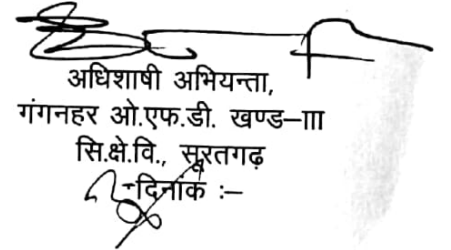 अधिशाषी अभियन्ता,
गंगनहर ओ.एफ.डी. खण्ड–III
सि.क्षे.वि., सूरतगढ़
दिनांक :–